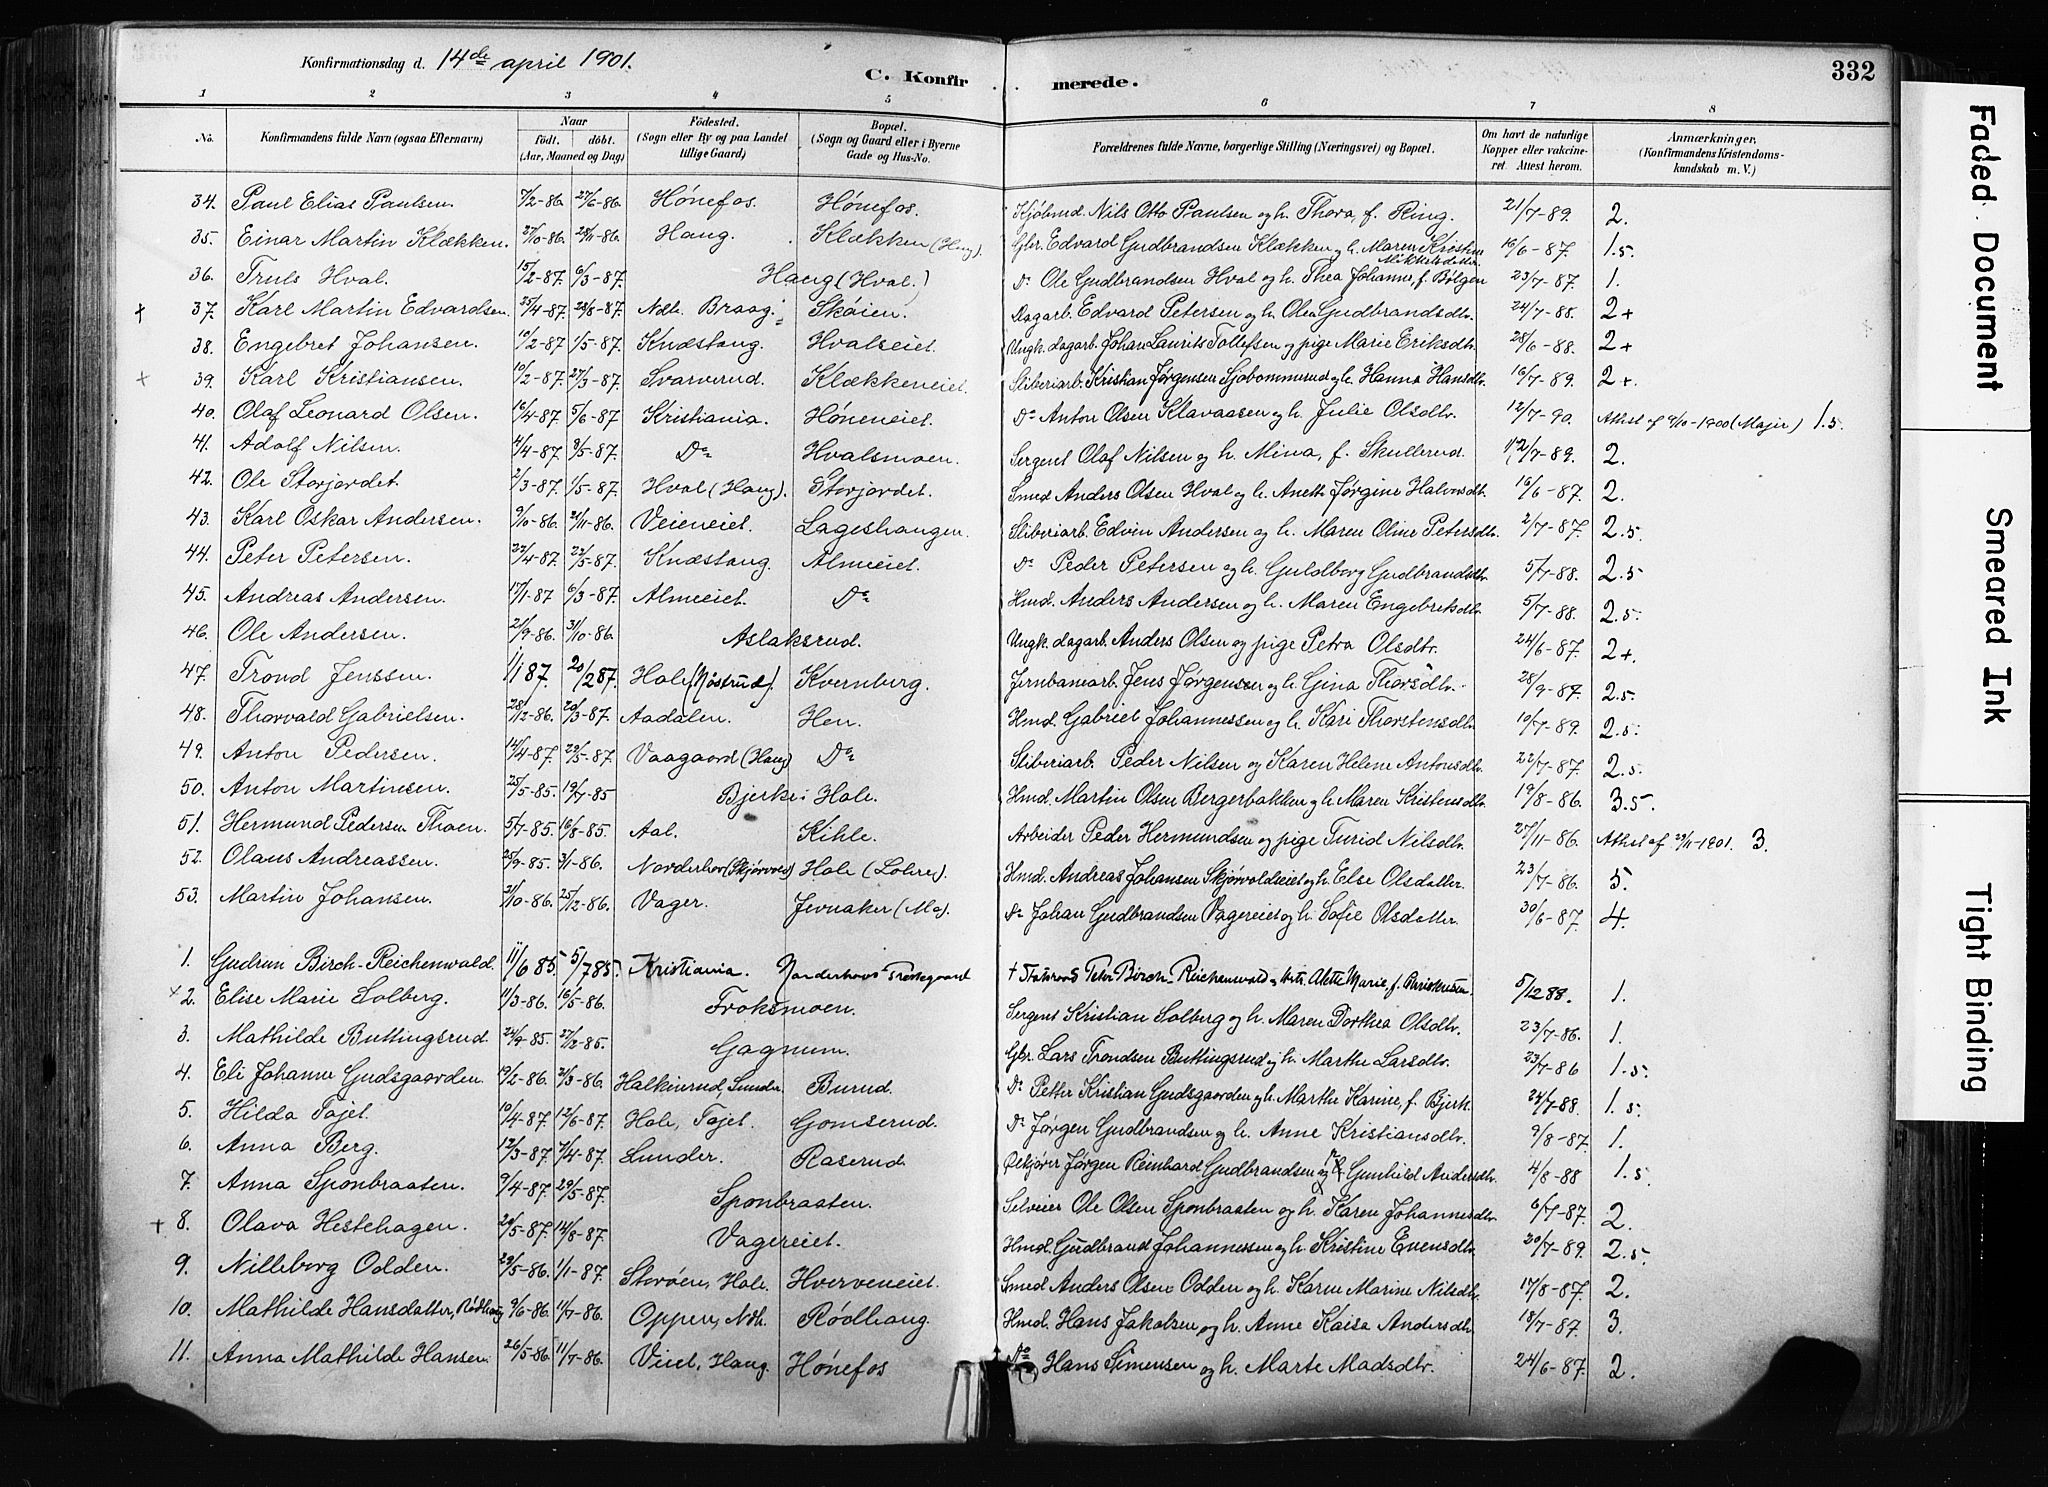 Konfirmationsdag d. 14de april 1901.
C. Konfirmerede.
332
1 2 3 4 5 6 7 8
No. Konfirmandens fulde Navn (ogsaa Efternavn) Naar født. døbt. (Aar, Maaned og Dag) Fødested. (Sogn eller By og paa Landet tillige Gaard) Bopæl. (Sogn og Gaard eller i Byerne Gade og Hus-No. Forældrenes fulde Navne, borgerlige Stilling (Næringsvei) og Bopæl. Om havt de naturlige Kopper eller vakcineret. Attest herom. Anmærkninger. (Konfirmandens Kristendomskundskab m. V.)
34. Paul Elias Paulsen. 7/2-86. 27/6-86. Hønefos. Hønefos. Kjøbmd. Nils Otto Paulsen og h. Thora, f. Ring. 21/7-89. 2.
35. Einar Martin Klækken. 27/10-86. 28/11-86. Haug. Klækken (Haug). Gbr. Edvard Gudbrandsen Klækken og h. Maren Kristine Mikkelsdatter. 16/6-87. 1.5.
36. Truls Hval. 15/2-87. 6/3-87. Haug (Hval.) Do Ole Gudbrandsen Hval og h. Thea Johanne, f. Bølgen 23/7-87. 1.
+ 37. Karl Martin Edvardsen. 25/4-87. 28/8-87. Ndr. Braag. Skøien. Dagarb. Edvard Petersen og h. Olea Gudbrandsdtr. 24/7-88. 2+
38. Engebret Johansen. 10/2-87 1/5-87. Knæstang. Hvalseiet. Ungk. dagarb. Johan Laurits Tollefsen og pige Marie Eriksdtr. 28/6-88. 2+
+ 39. Karl Kristiansen. 10/2-87. 27/3-87. Svarverud. Klækkeneiet. Sliberiarb. Kristian Jørgensen Sjøbommerud og h. Hanna Hansdtr. 16/7-89. 2+.
40. Olaf Leonard Olsen. 16/4-87. 5/6-87 Kristiania. Høneneiet. Do Anton Olsen Klavaasen og h. Julie Olsdtr. 12/7-90. Athst af 9/10-1900 (Majer) 1.5.
41. Adolf Nilsen. 4/4-87. 8/5-87. Do Hvalsmoen. Sergent Olaf Nilsen og h. Mina, f. Skullerud. 12/7-89. 2.
42. Ole Storjordet. 2/3-87. 1/5-87. Hval (Haug). Storjordet. Smed Anders Olsen Hval og h. Anette Jørgine Halvorsdtr. 16/6-87. 2.
43. Karl Oskar Andersen. 9/10-86. 21/11-86. Veieneiet. Lageshaugen. Sliberiarb. Edvin Andersen og h. Maren Oline Petersdtr. 2/7-87. 2.5.
44. Peter Petersen. 22/4-87. 22/5-87. Knæstang. Almeiet. Do Peder Petersen og h. Guldborg Gudbrandsdtr. 5/7-88. 2.5
45. Andreas Andersen. 17/1-87 6/3-87. Almeiet. Do Hmd. Anders Andersen og h. Maren Engebretsdtr. 5/7-88. 2.5.
46. Ole Andersen. 21/9-86. 31/10-86. Aslaksrud. Ungk. dagarb. Anders Olsen og pige Petra Olsdtr. 24/6-87. 2+.
47. Trond Jenssen. 1/1 87. 20/2 87. Hole (Nøstrud). Kvernberg. Jernbanearb. Jens Jørgensen og h. Gina Thorsdtr. 28/9-87. 2.5.
48. Thorvald Gabrielsen. 28/12-86. 20/3-87. Aadalen. Hen. Hmd. Gabriel Johannessen og h. Kari Thorstensdtr. 10/7-89. 2.5.
49. Anton Pedersen. 14/4-87. 29/5-87. Vaagaard (Haug) Do Sliberiarb. Peder Nilsen og Karen Helene Antonsdtr. 22/7-87. 2.5.
50. Anton Martinsen. 25/5-85. 19/7-85 Bjerke i Hole. Hmd. Martin Olsen Bergerbakken og h. Maren Kristensdtr. 19/8-86. 3.5.
51. Hermund Pedersen Thoen. 5/7-85. 16/8-85. Aal. Kihle. Arbeider Peder Hermundsen og pige Turid Nilsdtr. 27/11-86. Athst af 29/11-1901. 3.
52. Olaus Andreassen. 25/9-85. 3/1-86. Norderhov (Skjørvold) Hole (Lohre). Hmd. Andreas Johansen Skjørvoldseiet og h. Else Olsdatter. 23/7-86. 5.
53. Martin Johansen. 31/10-86. 25/12-86. Vager. Jevnaker (Mo). Do Johan Gudbrandsen Vagereiet og h. Sofie Olsdatter. 30/6-87. 4.
1. Gudrun Birch-Reichenwald. 11/6 85. 5/7 85. Kristiania. Norderhovs Prestegaard † Statsraad Peter Birch-Reichenwald, Hstr. Alette Marie, f. Christensen. 5/12 88. 1.
+ 2. Elise Marie Solberg. 11/3-86. 16/5-86. Froksmoen. Sergent Kristian Solberg og h. Maren Dorthea Olsdtr. 23/7-86. 1.
3. Mathilde Buttingsrud. 24/9-85. 27/12-85. Gagnum. Gbr. Lars Trondsen Buttingsrud og h. Marthe Larsdtr. 23/7-86 1.5.
4. Eli Johanne Gudsgaarden. 19/2-86. 21/3-86. Halkinrud, Lunder. Burud. Do Petter Kristian Gudsgaarden og h. Marthe Karine, f. Bjerk. 24/7-88. 1.5.
5. Hilda Fajet. 10/4-87. 12/6-87. Hole, Fajet. Gomserud. Do Jørgen Gudbrandsen og h. Anne Kristiansdtr. 9/8-87. 1.
6. Anna Berg. 12/3-87. 7/4-87. Lunder. Raserud. Jørgen Reinhard Gudbrandsen og h. Gunhild Andersdtr. 4/8-88 1.5.
7. Anna Sponbraaten. 9/4-87. 29/5-87. Sponbraaten. Selveier Ole Olsen Sponbraaten og h. Karen Johannesdtr. 6/7-87. 2.
+ 8. Olava Hestehagen. 20/5-87. 14/8-87. Vagereiet. Hmd. Gudbrand Johannessen og h. Kristine Evensdtr. 20/7-89. 2.5.
9. Nilleborg Odden. 29/5-86. 1/1-87. Storøen, Hole. Hverveneiet. Smed Anders Olsen Odden og h. Karen Marine Nilsdtr. 17/8-87. 2.
10. Mathilde Hansdatter, Rødhaug 9/6-86. 11/7-86. Oppen, Ndh. Rødhaug. Hmd. Hans Jakobsen og h. Anne Kaisa Andersdtr. 18/7-87. 3.
11. Anna Mathilde Hansen. 26/5-86. 11/7-86. Veiet, Haug. Hønefos Do Hans Simensen og h. Marte Madsdtr. 24/6-87. 2.
Faded Document
Smeared Ink
Tight Binding